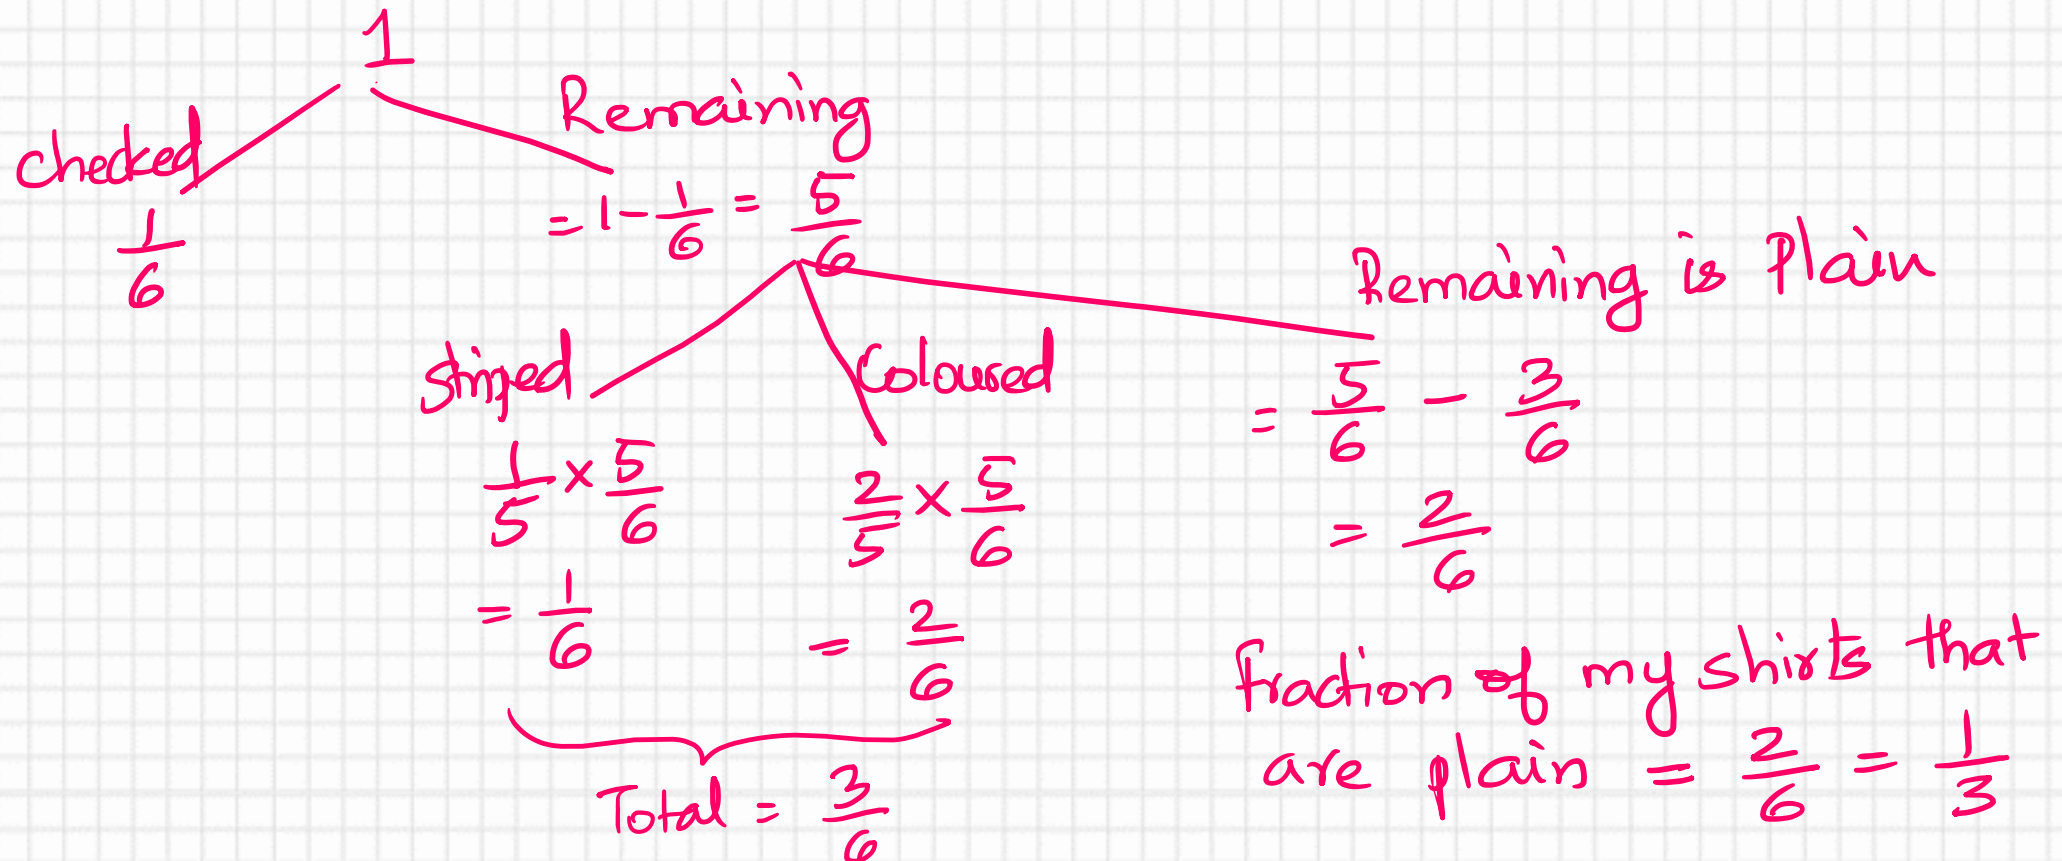 1
Checked
1/6
Remaining
= 1 - 1/6 = 5/6
Striped
1/5 × 5/6
= 1/6
Coloured
2/5 × 5/6
= 2/6
Total = 3/6
Remaining is Plain
= 5/6 - 3/6
= 2/6
fraction of my shirts that
are plain = 2/6 = 1/3